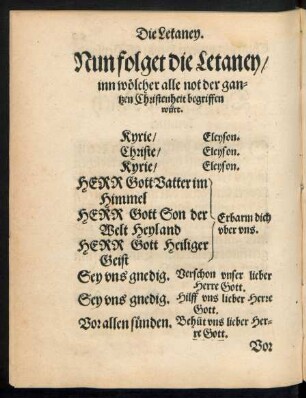 Die Letaney.
Nun folget die Letaney/
inn wölcher alle not der gan-
tzen Christenheit begriffen
würt.
Kyrie/ Eleyson.
Christe/ Eleyson.
Kyrie/ Eleyson.
HERR Gott Vatter im
Himmel
HERR Gott Son der
Welt Heyland
HERR Gott Heiliger
Geist
Erbarm dich
vber vns.
Sey vns gnedig. Verschon vnser lieber
Herre Gott.
Sey vns gnedig. Hilff vns lieber Herre
Gott.
Vor allen sünden. Behüt vns lieber Her-
re Gott.
Vor